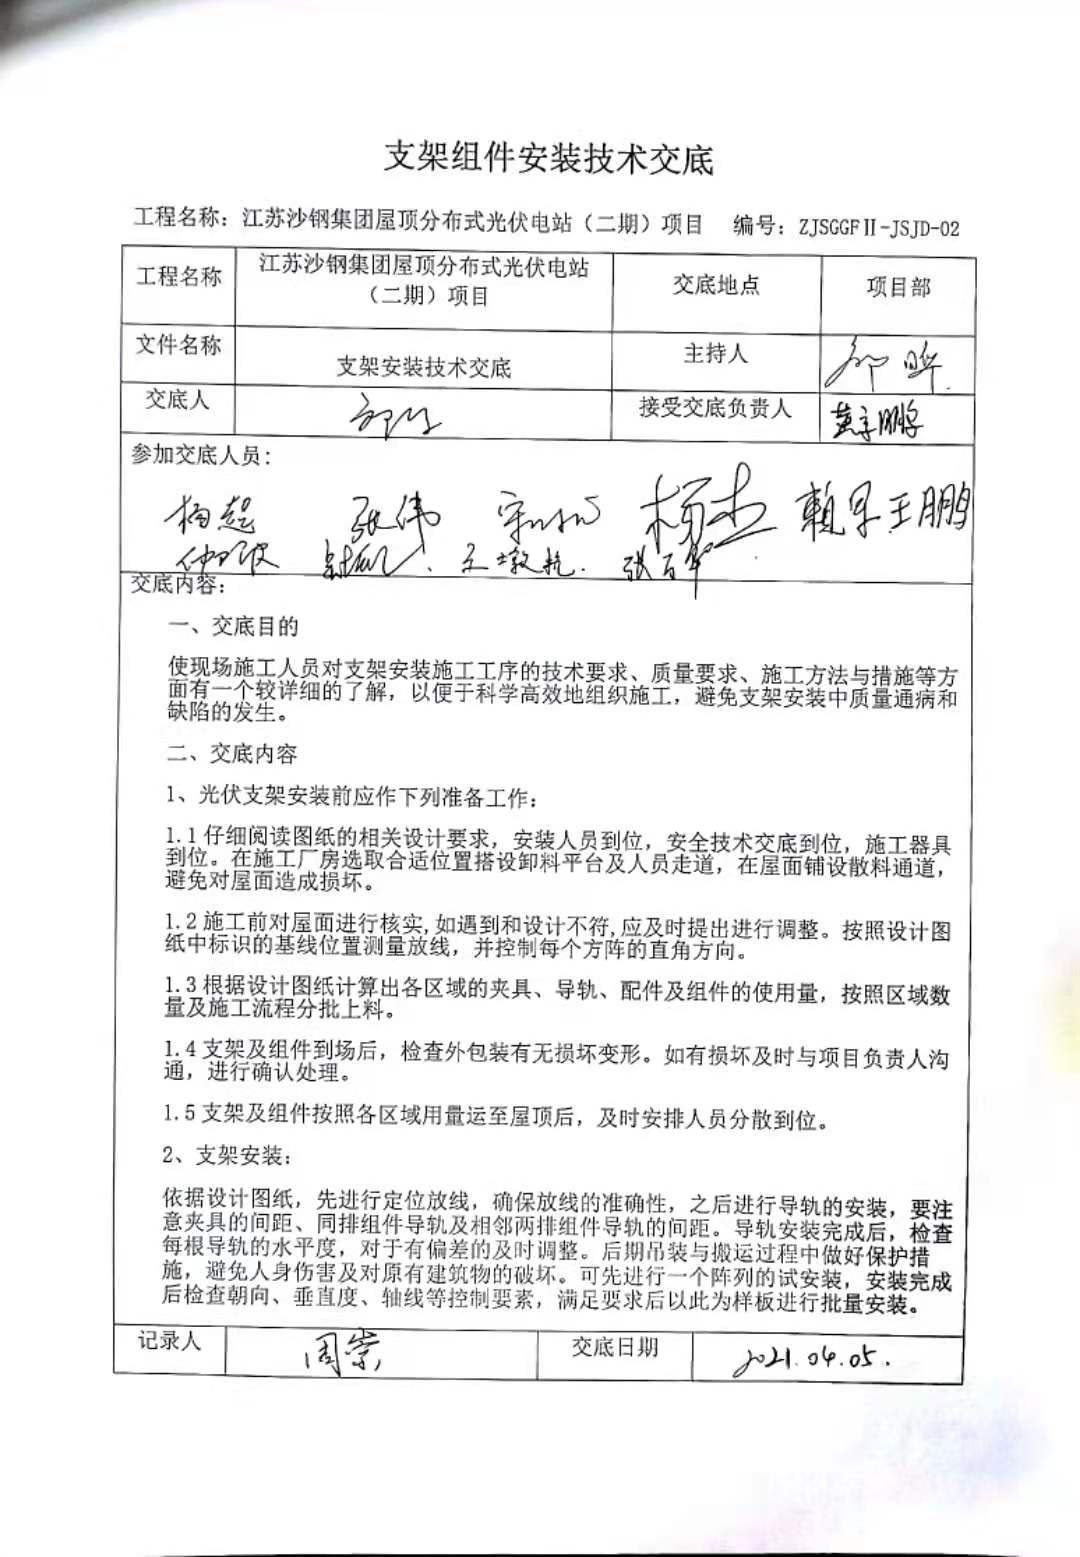 支架组件安装技术交底
工程名称：江苏沙钢集团屋顶分布式光伏电站（二期）项目 编号：ZJSGGFⅡ-JSJD-02
工程名称 江苏沙钢集团屋顶分布式光伏电站（二期）项目 交底地点 项目部
文件名称 支架安装技术交底 主持人
交底人 接受交底负责人
参加交底人员：
杨超 张伟 杨杰 王鹏
张百军
交底内容：
一、交底目的
使现场施工人员对支架安装施工工序的技术要求、质量要求、施工方法与措施等方
面有一个较详细的了解，以便于科学高效地组织施工，避免支架安装中质量通病和
缺陷的发生。
二、交底内容
1、光伏支架安装前应作下列准备工作：
1.1 仔细阅读图纸的相关设计要求，安装人员到位，安全技术交底到位，施工器具
到位。在施工厂房选取合适位置搭设卸料平台及人员走道，在屋面铺设散料通道，
避免对屋面造成损坏。
1.2 施工前对屋面进行核实,如遇到和设计不符,应及时提出进行调整。按照设计图
纸中标识的基线位置测量放线，并控制每个方阵的直角方向。
1.3 根据设计图纸计算出各区域的夹具、导轨、配件及组件的使用量，按照区域数
量及施工流程分批上料。
1.4 支架及组件到场后，检查外包装有无损坏变形。如有损坏及时与项目负责人沟
通，进行确认处理。
1.5 支架及组件按照各区域用量运至屋顶后，及时安排人员分散到位。
2、支架安装：
依据设计图纸，先进行定位放线，确保放线的准确性，之后进行导轨的安装，要注
意夹具的间距、同排组件导轨及相邻两排组件导轨的间距。导轨安装完成后，检查
每根导轨的水平度，对于有偏差的及时调整。后期吊装与搬运过程中做好保护措
施，避免人身伤害及对原有建筑物的破坏。可先进行一个阵列的试安装，安装完成
后检查朝向、垂直度、轴线等控制要素，满足要求后以此为样板进行批量安装。
记录人 周崇 交底日期 2021.04.05.